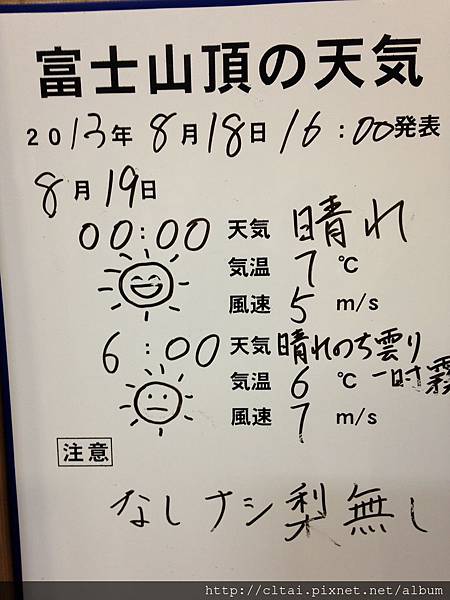 富士山頂の天気
2013年 8月18日 16:00発表
8月19日
00:00 天気 晴れ
気温 7 ℃
風速 5 m/s
6:00 天気 晴れのち曇り
気温 6 ℃ 一時霧
風速 7 m/s
注意
なし ナシ 梨 無し
http://cltai.pixnet.net/album